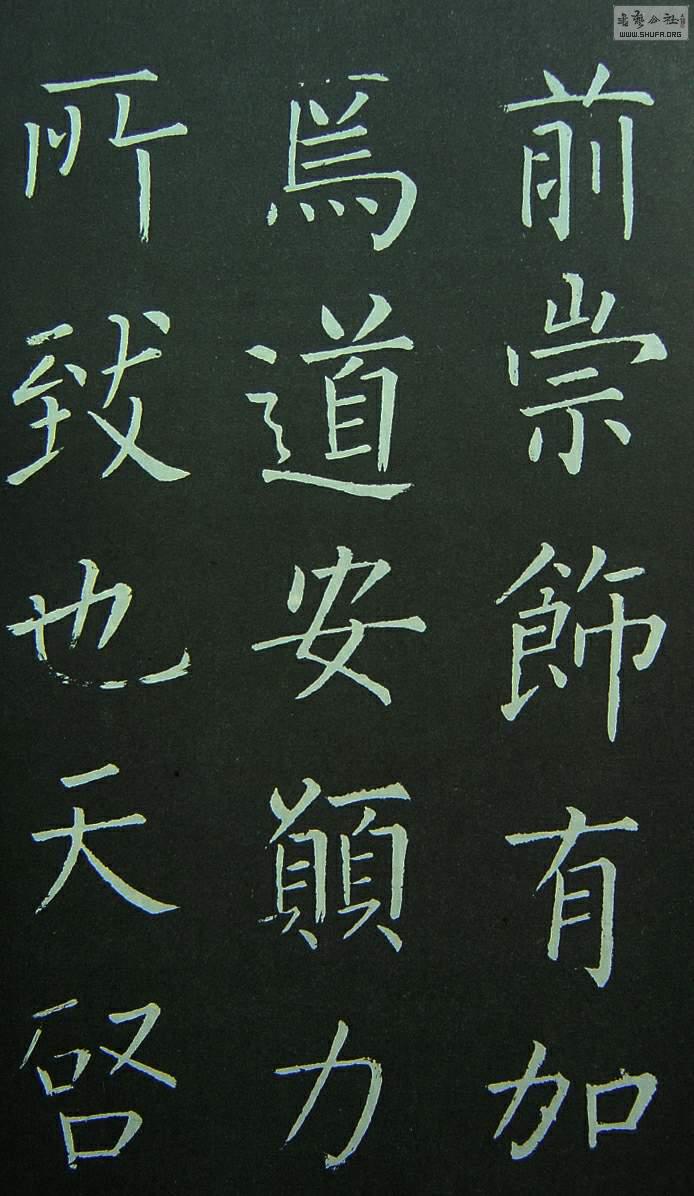 前崇飾有加
焉道安顛力
所致也天啓
書藝公社
WWW.SHUFA.ORG